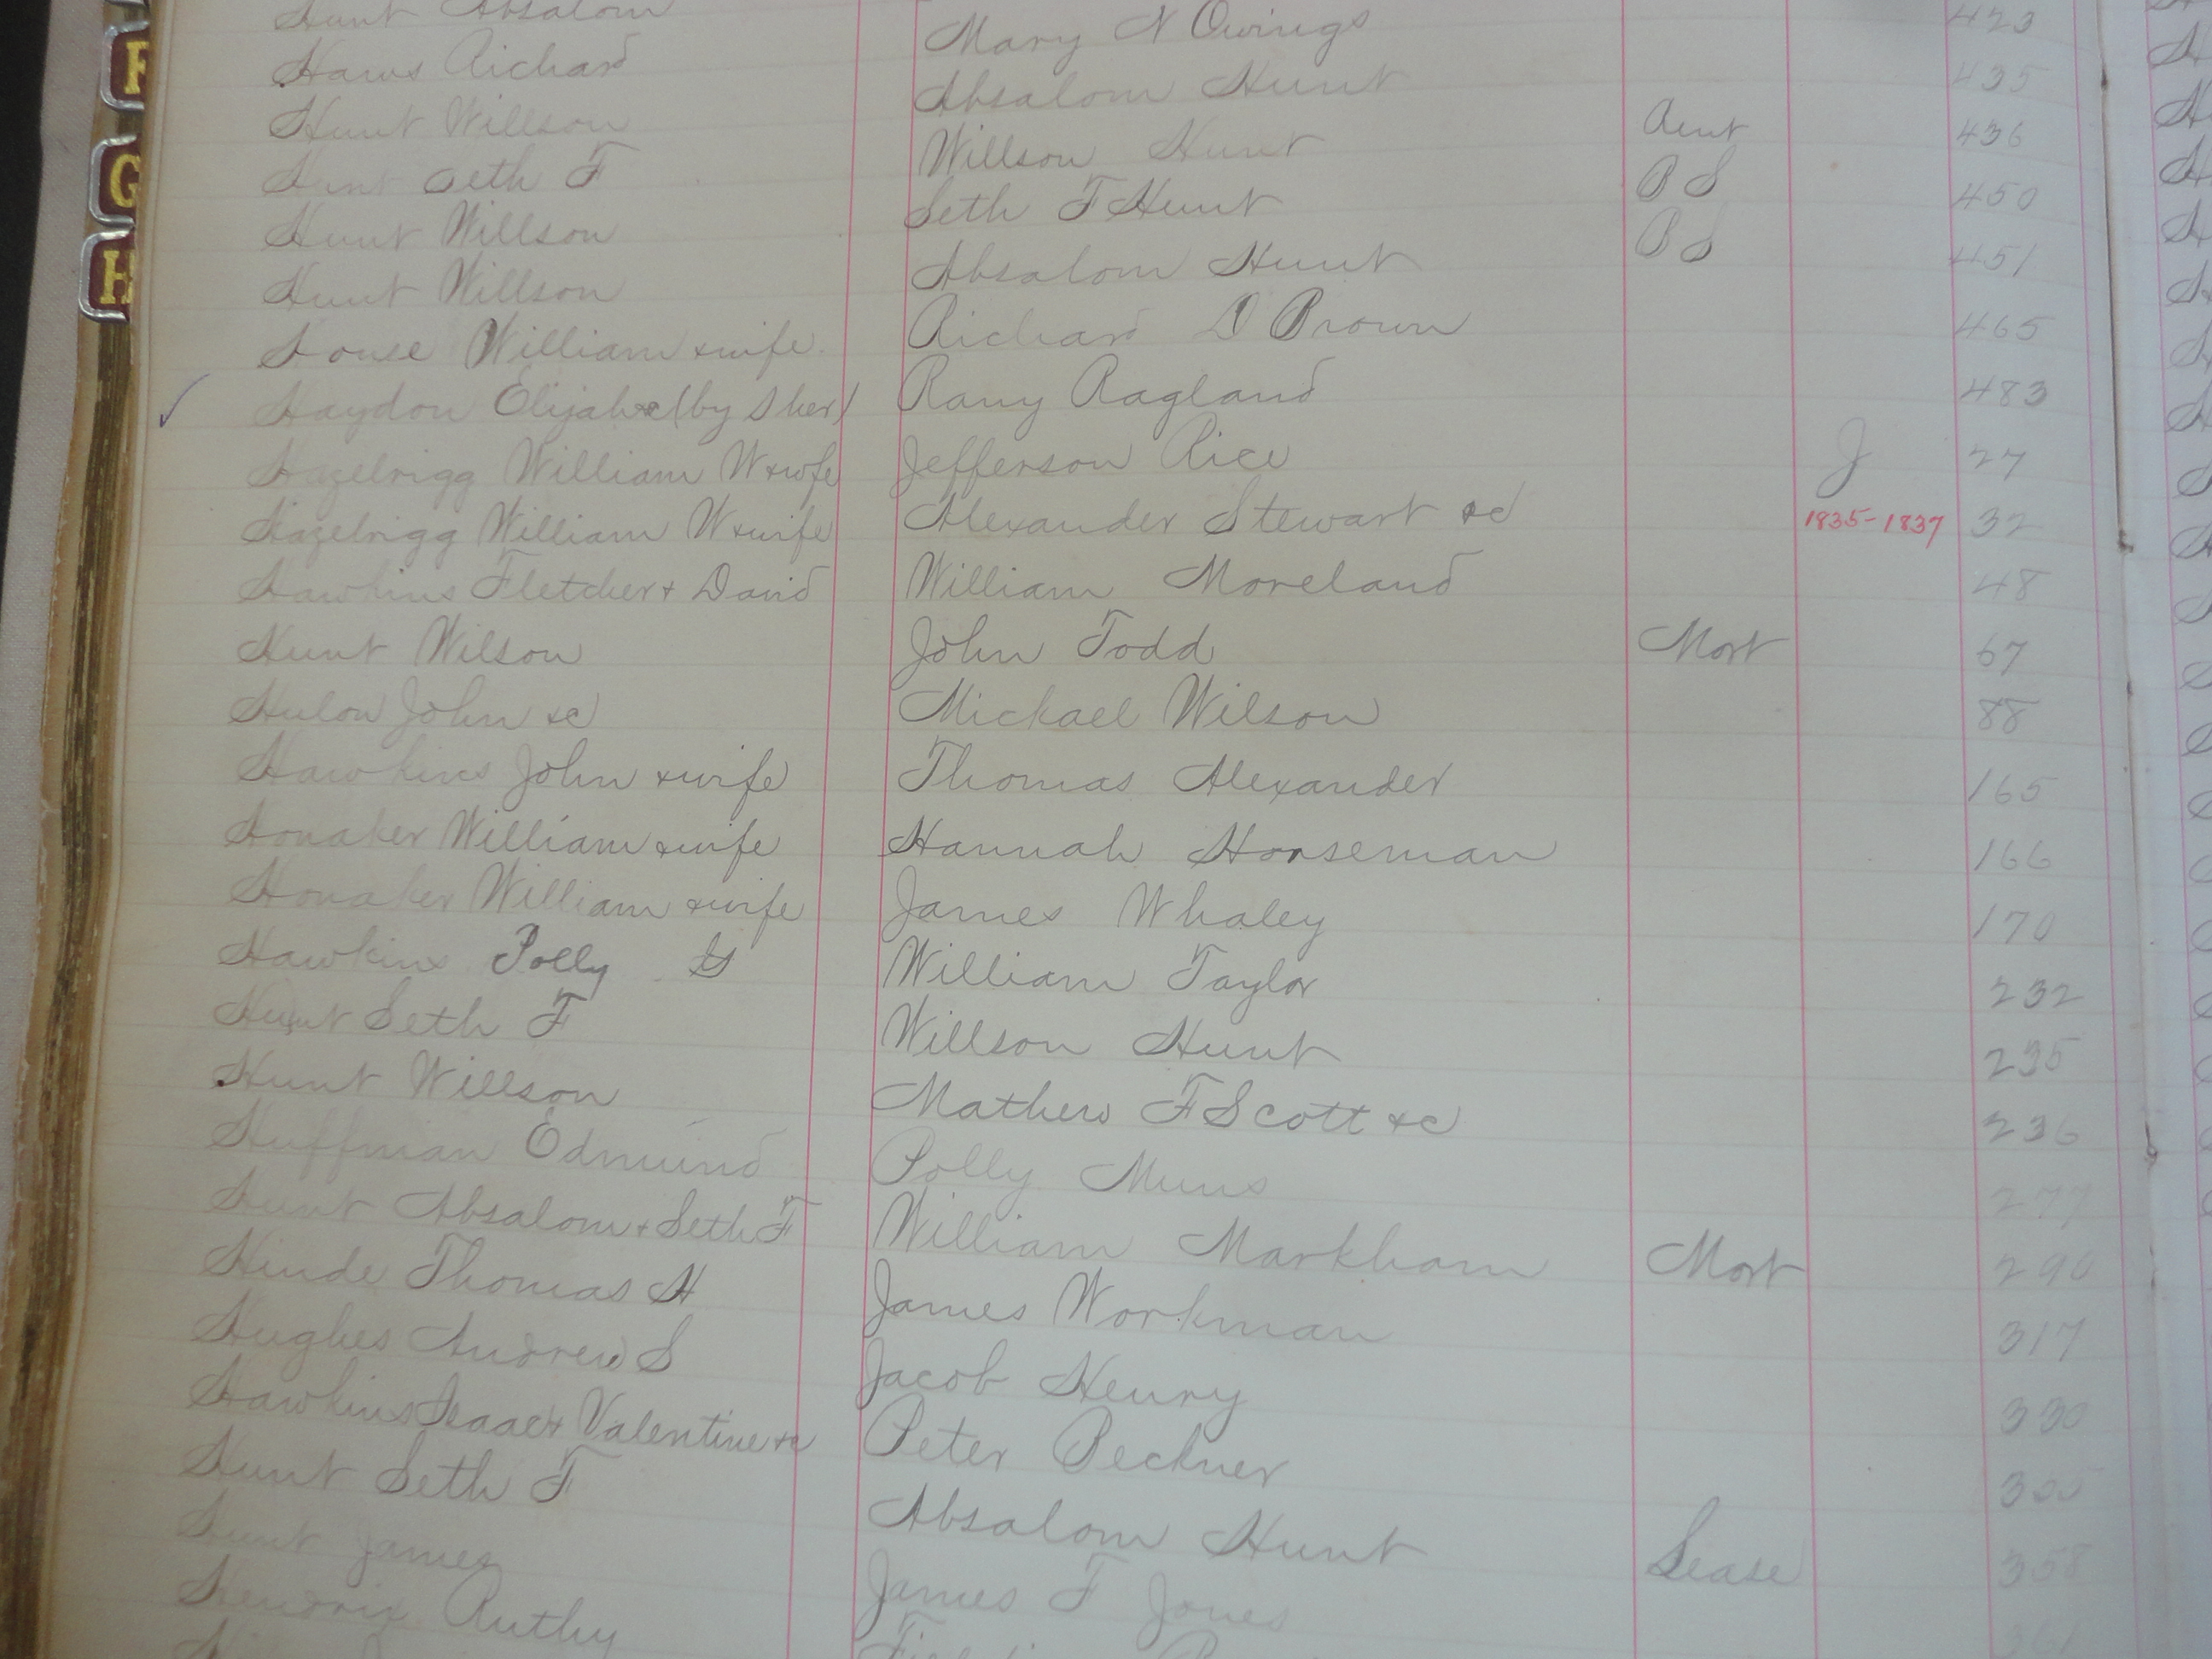 F
G
H
Hunt Absalom
Haws Richard Mary N Owings 423
Hunt Willson Absalom Hunt 435
Hunt Seth F Willson Hunt 436
Hunt Willson Seth F Hunt B S 450
Hunt Willson Absalom Hunt B S 451
House William & wife Richard D Brown 465
✓ Haydon Elijah &c (by Sher) Rany Ragland 483
Hazelrigg William W & wife Jefferson Rice J 27
Hazelrigg William W & wife Alexander Stewart &c 1835-1837 32
Hawkins Fletcher & David William Moreland 48
Hunt Wilson John Todd Mort 67
Hulon John &c Mickael Wilson 88
Hawkins John & wife Thomas Alexander 165
Honaker William & wife Hannah Horseman 166
Honaker William & wife James Whaley 170
Hawkins Polly William Taylor 232
Hunt Seth F Willson Hunt 235
Hunt Willson Mathew F Scott &c 236
Huffman Edmund Polly Muns 277
Hunt Absalom & Seth F William Markham Mort 290
Hinde Thomas H James Workman 317
Hughes Andrew S Jacob Henry 330
Hawkins Isaac & Valentine &c Peter
Hunt Seth F Absalom Hunt Lease 358
Hunt James James F Jones 361
Hendrix Ruthy